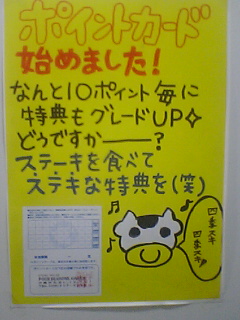 ポイントカード
始めました!
なんと10ポイント毎に
特典もグレードUP✧
どうですか――?
ステーキを食べて
ステキな特典を(笑)
四季スキ
四季スキ♪